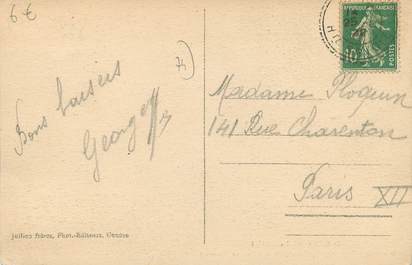 6 €
74
REPUBLIQUE FRANÇAISE
10 POSTES
Bons baisers
Georges
Madame Ploquin
141 Rue Charenton
Paris XII
Jullien frères, Phot.-Editeurs, Genève